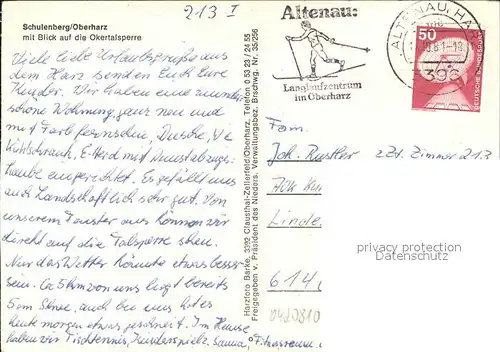 213 I
Schulenberg/Oberharz
mit Blick auf die Okertalsperre
Viele liebe Urlaubsgrüße aus
dem Harz senden Euch Eure
Kinder. Wir haben eine
schöne Wohnung, ganz neu und
mit Farbfernsehen, Dusche, We
Kühlschrank, E-Herd mit Dunstabzugs-
haube eingerichtet. Es gefällt uns
auch landschaftlich sehr gut. Von
unserem Fenster aus können wir
direkt auf die Talsperre sehen.
Nur das Wetter könnte etwas besser
sein. Ca 5km von uns liegt bereits
5cm Schnee, auch bei uns hat es
heute morgen etwas geschneit. Im Hause
haben wir Tischtennis, Kinderspielz. Sauna, Fitnessraum
Harzfoto Barke, 3392 Clausthal-Zellerfeld/Oberharz, Telefon 0 53 23 / 24 55
Freigegeben v. Präsident des Nieders. Verwaltungsbez. Brschwg. Nr. 35/256
Altenau:
Langlaufzentrum
im Oberharz
ALTENAU, HARZ
3396
50
DEUTSCHE BUNDESPOST
Fam.
Joh. zZt. Zimmer 213
614
privacy protection
Datenschutz
0410810